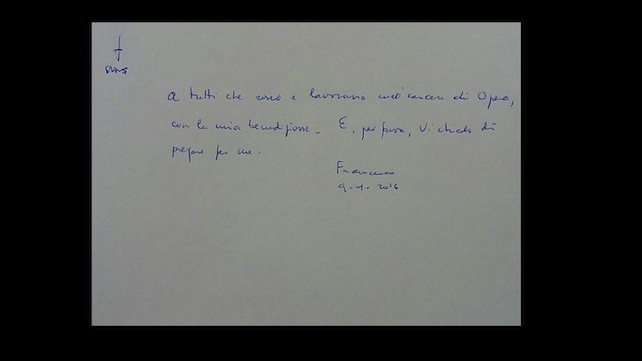 A tutti che sono e lavorano nel carcere di Opera,
con la mia benedizione. E, per favore, vi chiedo di
pregare per me.
Francesco
9-1-2016